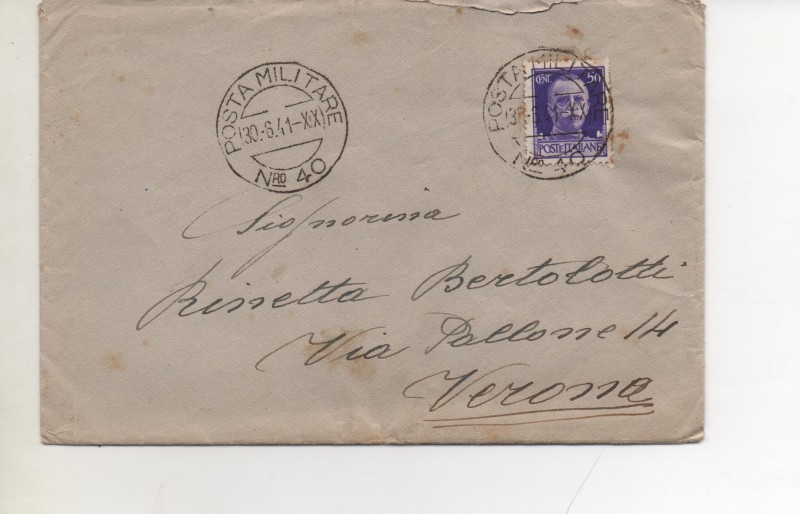 POSTA MILITARE
30.-6.41-XIX
Nro 40
POSTA MILITARE
Nro 40
CENT. 50
POSTE ITALIANE
Signorina
Rinetta Bertolotti
Via Pallone 14
Verona